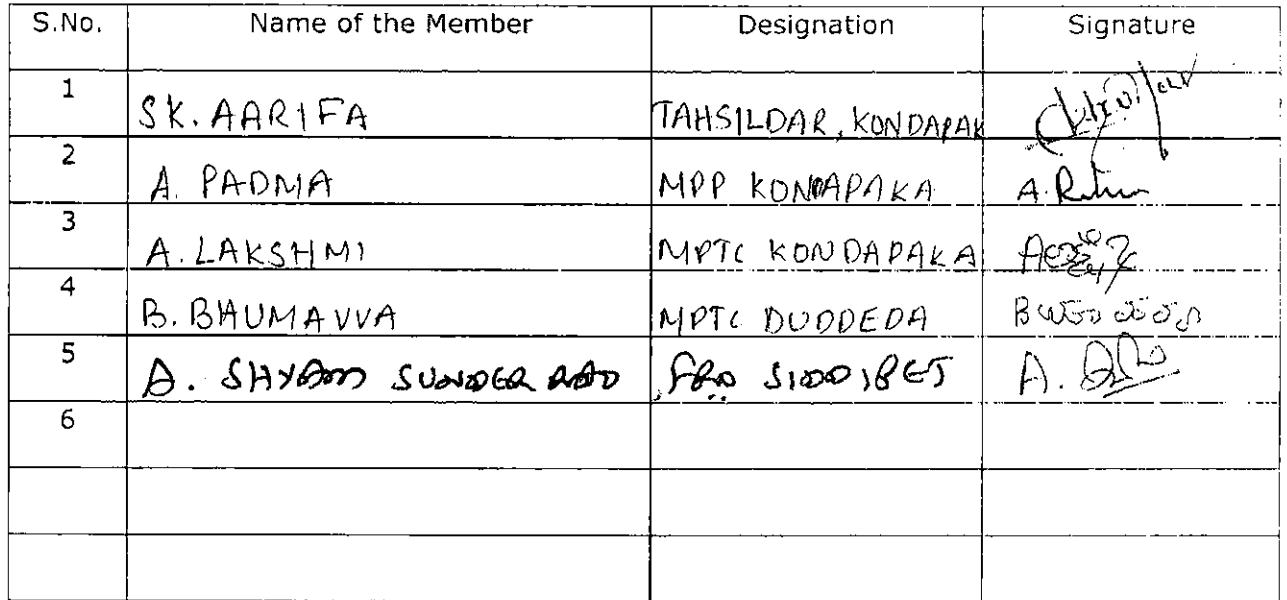 S.No. Name of the Member Designation Signature
1 SK. AARIFA TAHSILDAR, KONDAPAK
2 A. PADMA MPP KONDAPAKA A.
3 A. LAKSHMI MPTC KONDAPAKA
4 B. BHUMAVVA MPTC DUDDEDA B
5 A. SHYAM SUNDER RAO FRO SIDDIPET A.
6